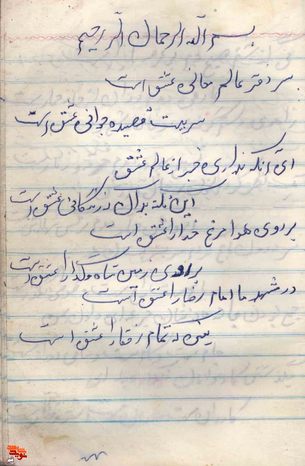 بسم الله الرحمان الرحیم
سر دفتر عالم معانی عشق است
سر بیت قصیده جوانی عشق است
ای آنکه نداری خبر از عالم عشق
این نکته بدان که زندگانی عشق است
بر روی هوا مرغ خدا را عشق است
بر روی زمین شاه و گدا را عشق است
در شهد ما امام رضا را عشق است
یکی تمام رفقا را عشق است